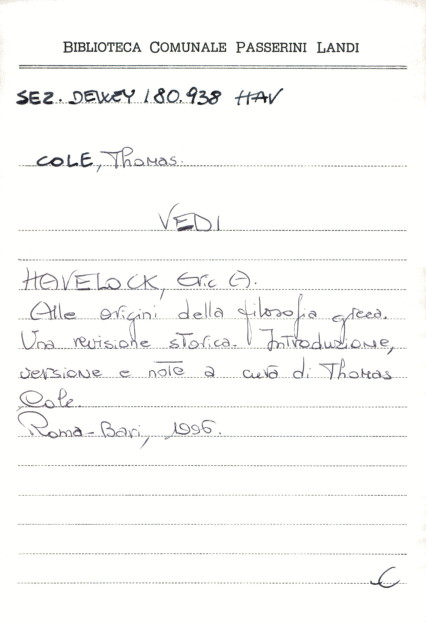 BIBLIOTECA COMUNALE PASSERINI LANDI
SEZ. DEWEY 180.938 HAV
COLE, Thomas.
VEDI
HAVELOCK, Eric A.
Alle origini della filosofia greca.
Una revisione storica. Introduzione,
versione e note a cura di Thomas
Cole.
Roma-Bari, 1996.
C